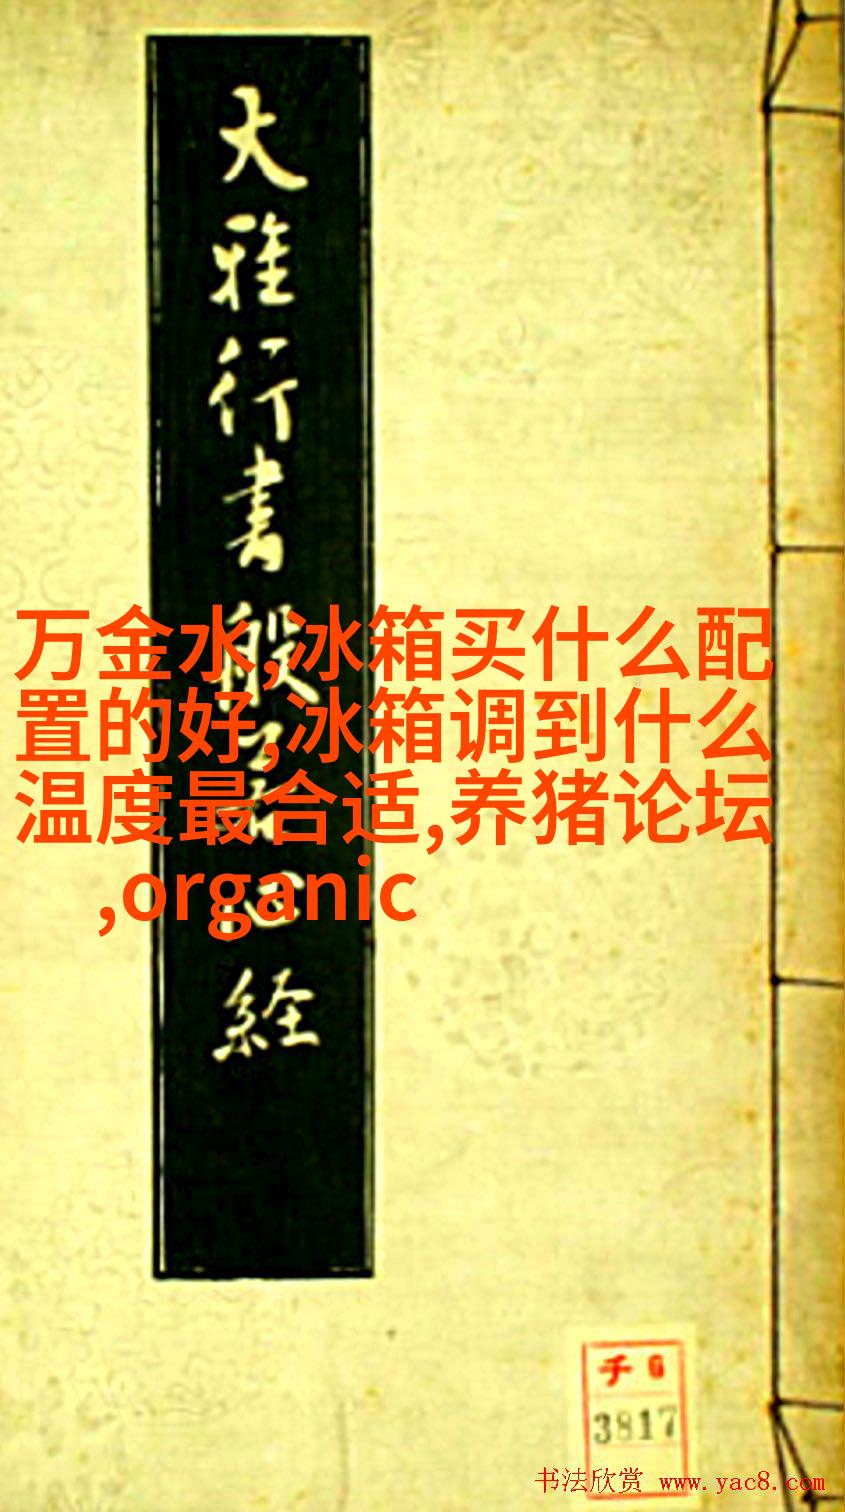 大雅行書般若心経
万金水,冰箱买什么配
置的好,冰箱调到什么
温度最合适,养猪论坛
,organic
チ 6
3817
书法欣赏 www.yac8.com